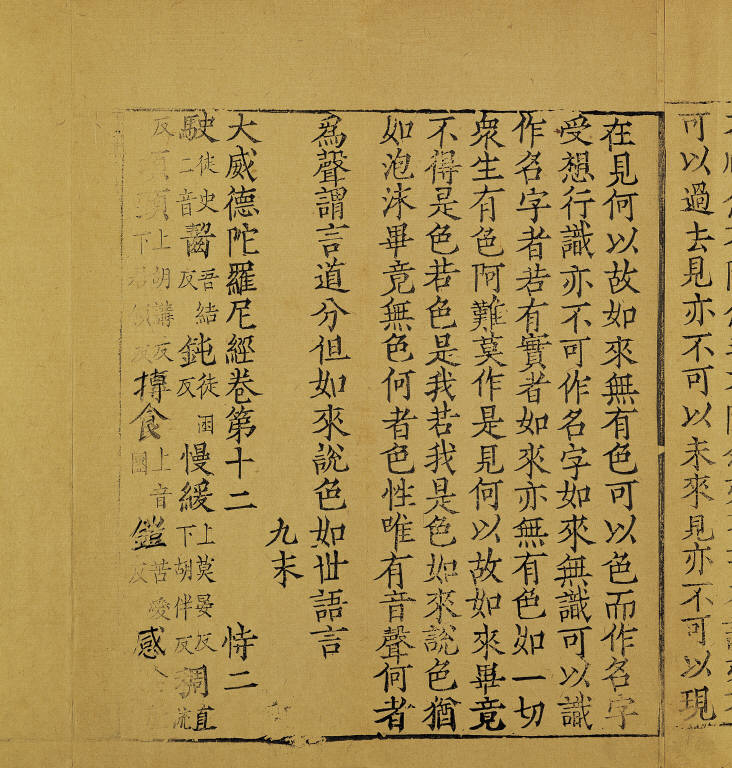 可以過去見亦不可以未來見亦不可以現
在見何以故如來無有色可以色而作名字
受想行識亦不可作名字如來無識可以識
作名字者若有實者如來亦無有色如一切
衆生有色阿難莫作是見何以故如來畢竟
不得是色若色是我若我是色如來說色猶
如泡沫畢竟無色何者色性唯有音聲何者
為聲謂言道分但如來說色如世語言
九末
大威德陀羅尼經卷第十二 恃二
駛徒史二音齧吾結反鈍徒困反慢緩上莫晏反下胡伴反稠直流
反項上胡講反下反摶食上音團鎧苦愛反感